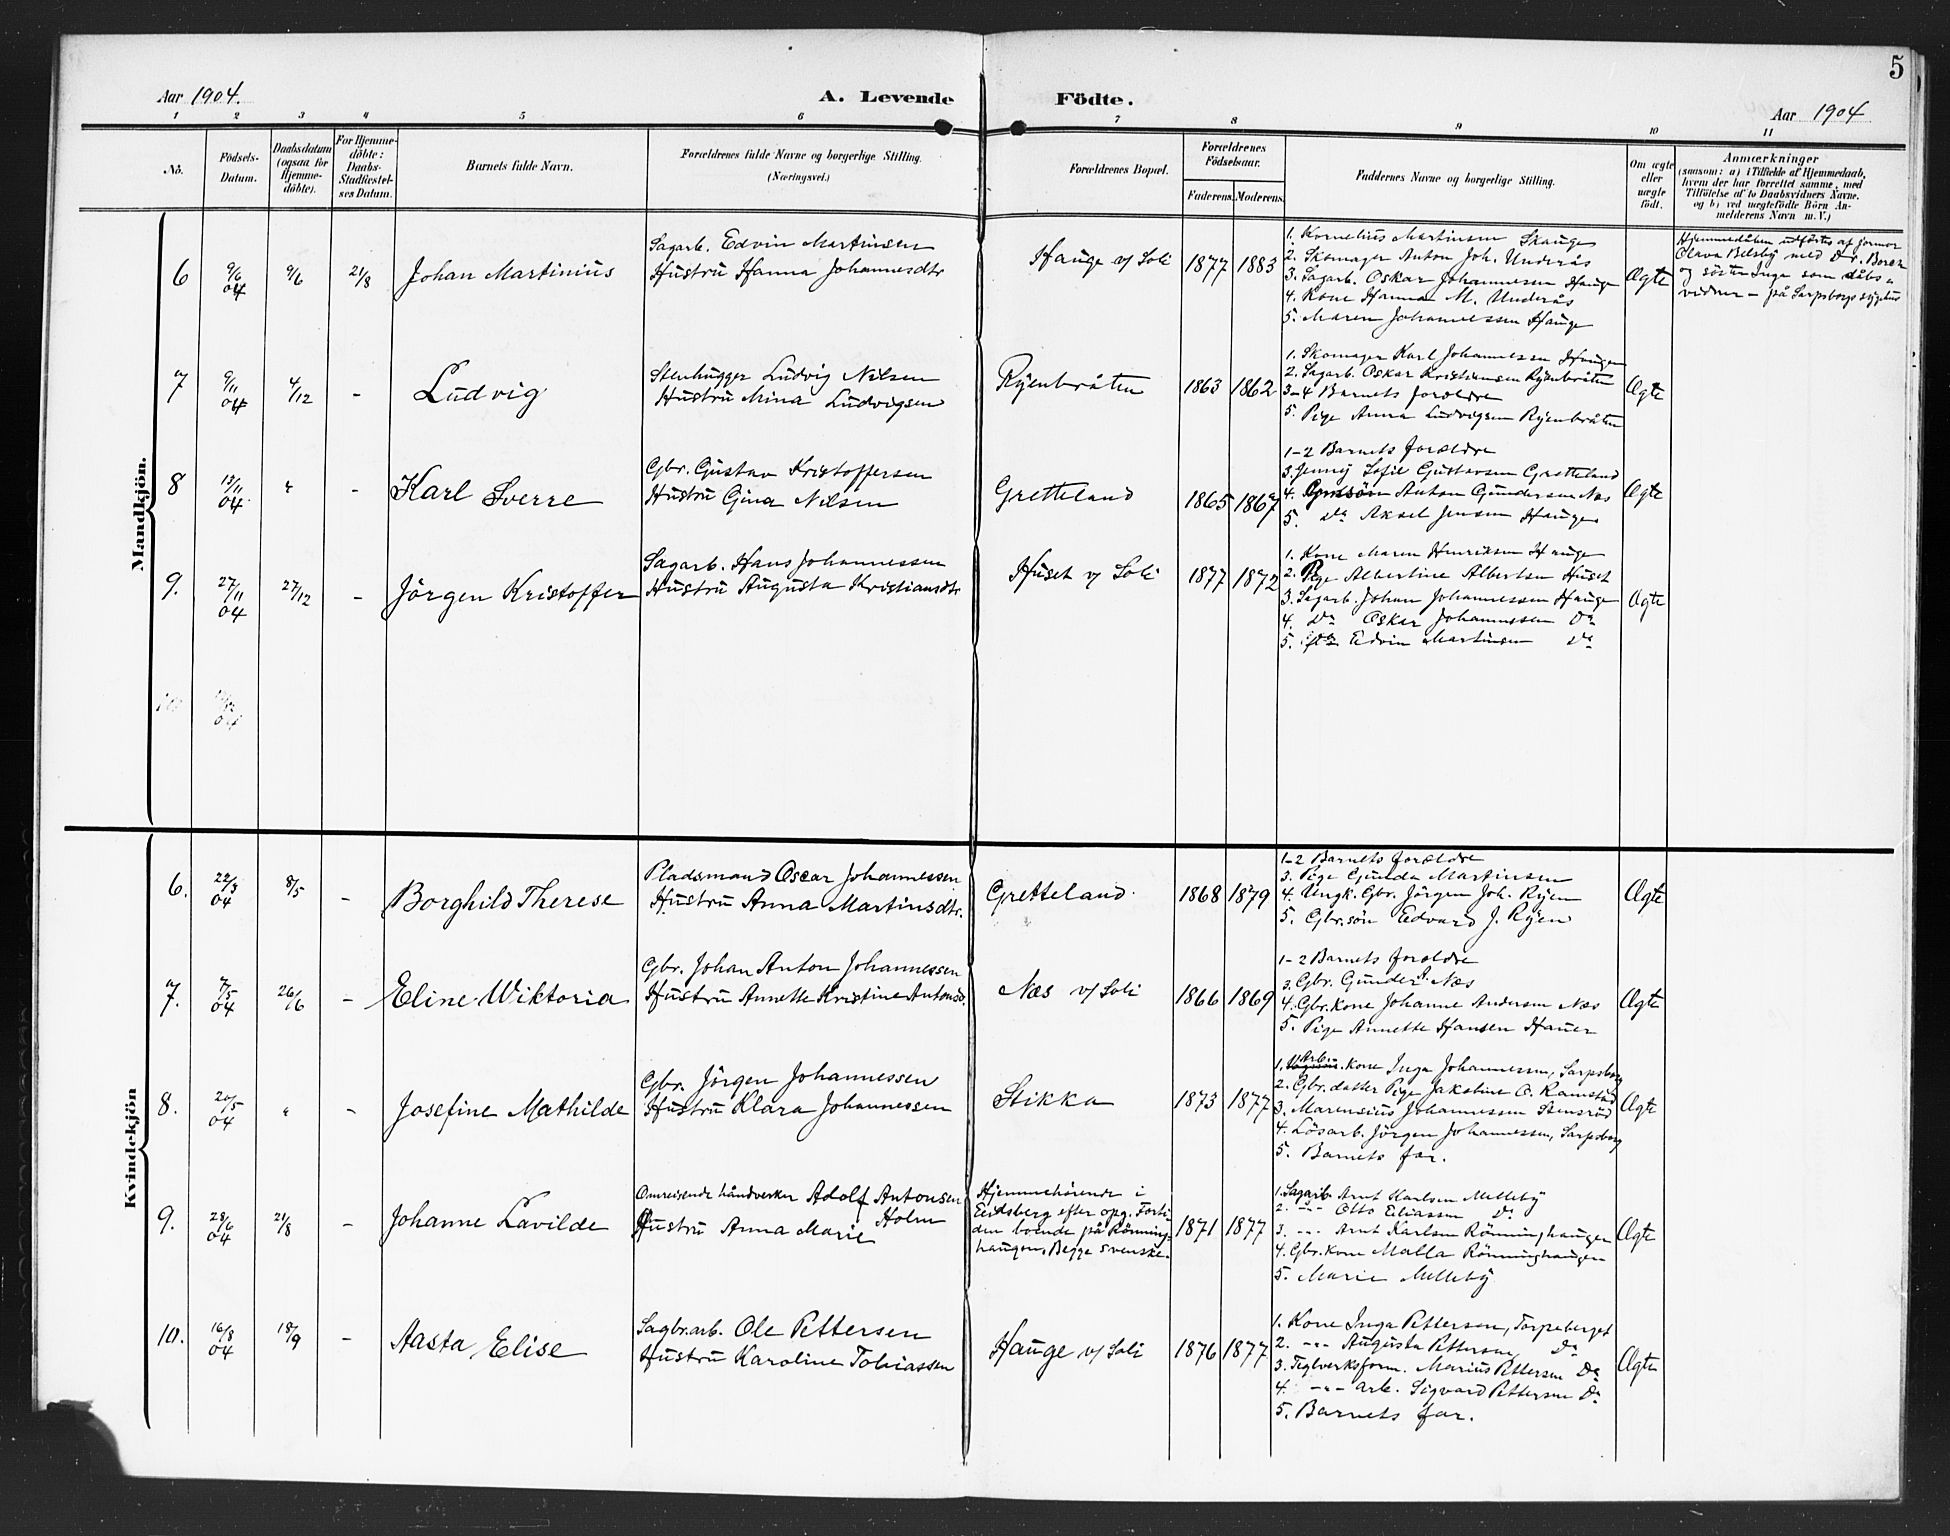 5
Aar 1904.
A. Levende Födte.
Aar 1904
1 2 3 4 5 6 7 8 9 10 11
No.
Födsels-
Datum.
Daabsdatum
(ogsaa for
Hjemme-
döbte).
For Hjemme-
döbte:
Daabs-
Stadfæstel-
ses Datum.
Barnets fulde Navn.
Forældrenes fulde Navne og borgerlige Stilling.
(Næringsvei.)
Forældrenes Bopæl.
Forældrenes
Födselsaar.
Faderens. Moderens.
Faddernes Navne og borgerlige Stilling.
Om ægte
eller
uægte
født.
Anmærkninger
(saasom: a) i Tilfælde af Hjemmedaab,
hvem der har forrettet samme, med
Tilföielse af to Daabsvidners Navne.
og b) ved uægtefödte Börn An-
melderens Navn m. V.)
Mandkjön.
6
9/6
04
9/6
21/8
Johan Martinius
Sagarb. Edvin Martinsen
Hustru Hanna Johannesdtr
Hauge v/ Soli
1877
1883
1. Kornelius Martinsen Skauge
2. Skomager Anton Joh. Underås
3. Sagarb. Oskar Johannessen Hauge
4. Kone Hanna M. Underås
5. Maren Johannessen Hauge
Ægte
Hjemmedåben udførtes af jormor
Olava Belsby med Dr. Borch
og söster Inga som dåbs-
vidner - på Sarpsborg sygehus
7
9/11
04
4/12
-
Ludvig
Stenhugger Ludvig Nilsen
Hustru Mina Ludvigsen
Ryenbråten
1863
1862
1. Skomager Karl Johannessen Haugen
2. Sagarb. Oskar Kristiansen Ryenbråten
3-4 Barnets forældre
5. Pige Anna Ludvigsen Ryenbråten
Ægte
8
13/11
04
"
-
Karl Sverre
Gbr. Gustav Kristoffersen
Hustru Gina Nilsen
Gretteland
1865
1867
1-2 Barnets forældre
3. Jenny Sofie Gustavsen Gretteland
4. Anton Gundersen Næs
5. Do Aksel Jensen Hauge
Ægte
9.
27/11
04
27/12
-
Jörgen Kristoffer
Sagarb. Hans Johannessen
Hustru Augusta Kristiansdtr
Huset v/ Soli
1877
1872
1. Kone Maren Henriksen Hauge
2. Pige Albertine Albertsen Huset
3. Sagarb. Johan Johannessen Hauge
4. Do Oskar Johannessen Do
5. Do Edvin Martinsen Do
Ægte
10
04
Kvindekjön
6.
22/3
04
8/5
-
Borghild Therese
Pladsmand Oscar Johannessen
Hustru Anna Martinsdtr.
Gretteland.
1868
1879
1-2 Barnets forældre
3. Pige Gunda Martinsen
4. Ungk. Gbr. Jörgen Joh. Ryen
5. Gbr.sön Edvard J. Ryen
Ægte
7.
7/5
04
26/6
-
Eline Wiktoria
Gbr. Johan Anton Johannessen
Hustru Annette Kristine Antonsd.
Næs v/ Soli
1866
1869
1-2 Barnets forældre
3. Gbr. Gunder A. Næs
4. Gbr.kone Johanne Andersen Næs
5. Pige Annette Hansen Hauer
Ægte
8.
20/5
04
"
-
Josefine Mathilde
Gbr. Jörgen Johannessen
Hustru Klara Johannessen
Stikka
1873
1877
1. Arb.-kone Inga Johannessen, Sarpsborg
2. Gbr.datter Pige Jakobine O. Ramstad
3. Marensius Johannessen Stensröd
4. Lösarb. Jörgen Johannessen, Sarpsborg
5. Barnets far.
Ægte
9.
28/6
04
21/8
-
Johanne Lavilde
Omreisende håndverker Adolf Antonsen
Holm
Hustru Anna Marie
Hjemmehörende i
Eidsberg efter opg. Forti-
den boende på Rönning-
haugen. Begge svenske.
1871
1877
1. Sagarb. Arnt Karlsen Melleby
2. -"- Otto Eliassen Do
3. -"- Arnt Karlsen Rönninghaugen
4. Gbr.kone Malla Rönninghaugen
5. Marie Melleby
Ægte
10.
16/8
04
18/9
-
Aasta Elise
Sagbr.arb. Ole Pettersen
Hustru Karoline Tobiassen
Hauge v/ Soli
1876
1877
1. Kone Inga Pettersen, Torpeberget
2. -"- Augusta Pettersen Do
3. Teglverksform. Marius Pettersen Do
4. -"- arb. Sigvard Pettersen Do
5. Barnets far.
Ægte